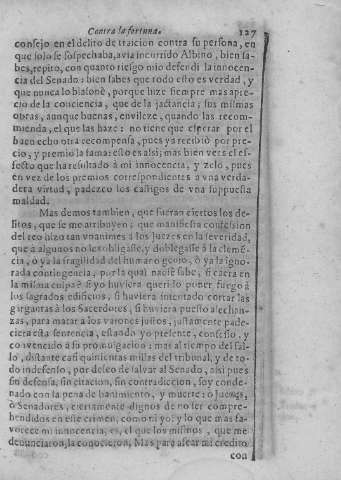 Contra la fortuna. 127
consejo en el delito de traicion contra su persona, en
que solo se sospechaba, avia incurrido Albino, bien sa-
bes, repito, con quanto riesgo mio defendi la innocen-
cia del Senado: bien sabes que todo esto es verdad, y
que nunca lo blasonè, porque hize siempre mas apre-
cio de la conciencia, que de la jactancia; sus mismas
obras, aunque buenas, envileze, quando las recom-
mienda, el que las haze: no tiene que esperar por el
bien echo otra recompensa, pues ya recibiò por pre-
cio, y premio la fama: esto es assi; mas bien vers el ef-
fecto que ha resultado à mi innocencia, y zelo, pues
en vez de los premios correspondientes à vna verda-
dera virtud, padezco los castigos de vna supuesta
maldad.
Mas demos tambien, que fueran ciertos los de-
litos, que se me atribuyen: que manifiesta confession
del reo hizo tan vnanimes à los Juezes en la severidad,
que à algunos no les obligasse, y doblegasse à la cleme-
cia, ò ya la fragilidad del humano genio, ò ya la igno-
rada contingencia, por la qual nadie sabe, si caera en
la misma culpa? si yo huviera querido poner fuego à
los sagrados edificios, si huviera intentado cortar las
gargantas à los Sacerdotes, si huviera puesto assechan-
zas, para matar à los varones justos, justamente pade-
ciera esta sentencia, estando yo presente, confesso, y
convencido à su promulgacion: mas al tiempo del fal-
lo, distante casi quinientas millas del tribunal, y de to-
do indefenso, por deseo de salvar al Senado, assi pues
sin defensa, sin citacion, sin contradiccion, soy conde-
nado con la pena de banimiento, y muerte: ò Juezes,
ò Senadores, ciertamente dignos de no ser compre-
hendidos en este crimen, como yo: y lo que mas fa-
vorece mi innocencia, es, el que los mismos, que me
denunciaron, la conocieron, Mas para afear mi credito
con